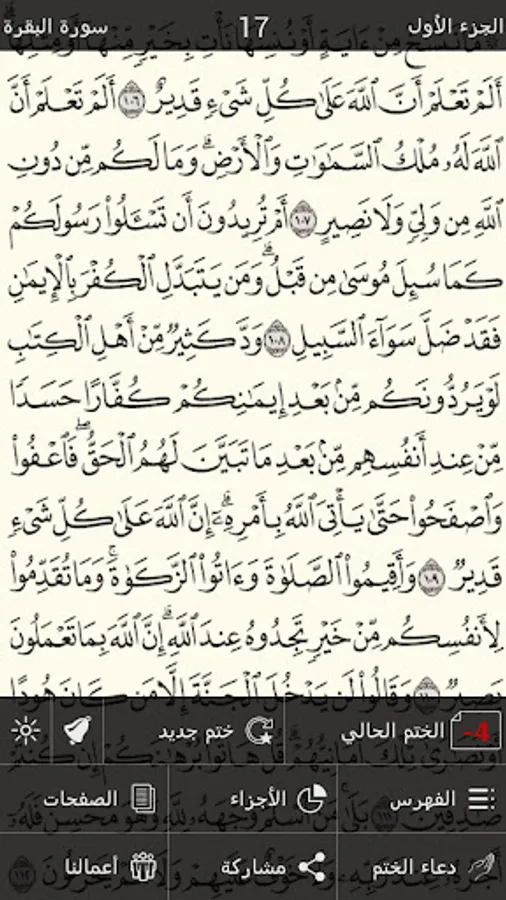 الجزء الأول 17 سورة البقرة
۞ مَا نَنسَخْ مِنْ ءَايَةٍ أَوْ نُنسِهَا نَأْتِ بِخَيْرٍ مِّنْهَا أَوْ مِثْلِهَآ
أَلَمْ تَعْلَمْ أَنَّ ٱللَّهَ عَلَىٰ كُلِّ شَىْءٍ قَدِيرٌ ١٠٦ أَلَمْ تَعْلَمْ أَنَّ
ٱللَّهَ لَهُۥ مُلْكُ ٱلسَّمَٰوَٰتِ وَٱلْأَرْضِ ۗ وَمَا لَكُم مِّن دُونِ
ٱللَّهِ مِن وَلِىٍّ وَلَا نَصِيرٍ ١٠٧ أَمْ تُرِيدُونَ أَن تَسْـَٔلُوا۟ رَسُولَكُمْ
كَمَا سُئِلَ مُوسَىٰ مِن قَبْلُ ۗ وَمَن يَتَبَدَّلِ ٱلْكُفْرَ بِٱلْإِيمَٰنِ
فَقَدْ ضَلَّ سَوَآءَ ٱلسَّبِيلِ ١٠٨ وَدَّ كَثِيرٌ مِّنْ أَهْلِ ٱلْكِتَٰبِ
لَوْ يَرُدُّونَكُم مِّنۢ بَعْدِ إِيمَٰنِكُمْ كُفَّارًا حَسَدًا
مِّنْ عِندِ أَنفُسِهِم مِّنۢ بَعْدِ مَا تَبَيَّنَ لَهُمُ ٱلْحَقُّ ۖ فَٱعْفُوا۟
وَٱصْفَحُوا۟ حَتَّىٰ يَأْتِىَ ٱللَّهُ بِأَمْرِهِۦٓ ۗ إِنَّ ٱللَّهَ عَلَىٰ كُلِّ شَىْءٍ
قَدِيرٌ ١٠٩ وَأَقِيمُوا۟ ٱلصَّلَوٰةَ وَءَاتُوا۟ ٱلزَّكَوٰةَ ۚ وَمَا تُقَدِّمُوا۟
لِأَنفُسِكُم مِّنْ خَيْرٍ تَجِدُوهُ عِندَ ٱللَّهِ ۗ إِنَّ ٱللَّهَ بِمَا تَعْمَلُونَ
بَصِيرٌ ١١٠ وَقَالُوا۟ لَن يَدْخُلَ ٱلْجَنَّةَ إِلَّا مَن كَانَ هُودًا
-4 الختم الحالي ختم جديد
أَوْ نَصَٰرَىٰ ۗ تِلْكَ أَمَانِيُّهُمْ ۗ قُلْ هَاتُوا۟ بُرْهَٰنَكُمْ إِن كُنتُمْ
الفهرس الأجزاء الصفحات
صَٰدِقِينَ ١١١ بَلَىٰ مَنْ أَسْلَمَ وَجْهَهُۥ لِلَّهِ وَهُوَ مُحْسِنٌ فَلَهُۥٓ
دعاء الختم مشاركة أعمالنا
أَجْرُهُۥ عِندَ رَبِّهِۦ وَلَا خَوْفٌ عَلَيْهِمْ وَلَا هُمْ يَحْزَنُونَ ١١٢